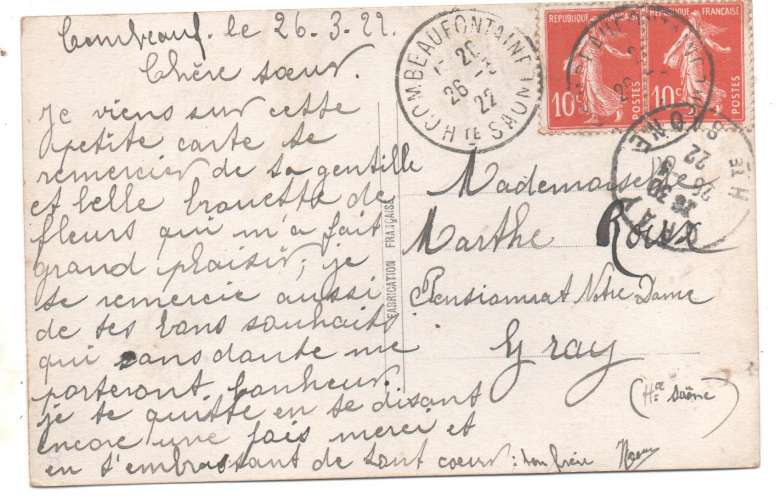 Combeauf. le 26-3-22.
Chère sœur.
Je viens sur cette
petite carte te
remercier de ta gentille
et belle brouette de
fleurs qui m'a fait
grand plaisir; je
te remercie aussi
de tes bons souhaits
qui sans doute me
porteront bonheur.
je te quitte en te disant
encore une fois merci et
en t'embrassant de tout cœur: ton frère
COMBEAUFONTAINE
26 - 3
22
HTE SAONE
REPUBLIQUE FRANÇAISE
10c
POSTES
REPUBLIQUE FRANÇAISE
10c
POSTES
GRAY
HTE SAONE
FABRICATION FRANÇAISE
Mademoiselle
Marthe Roux
Pensionnat Notre Dame
Gray
(Hte Saône)